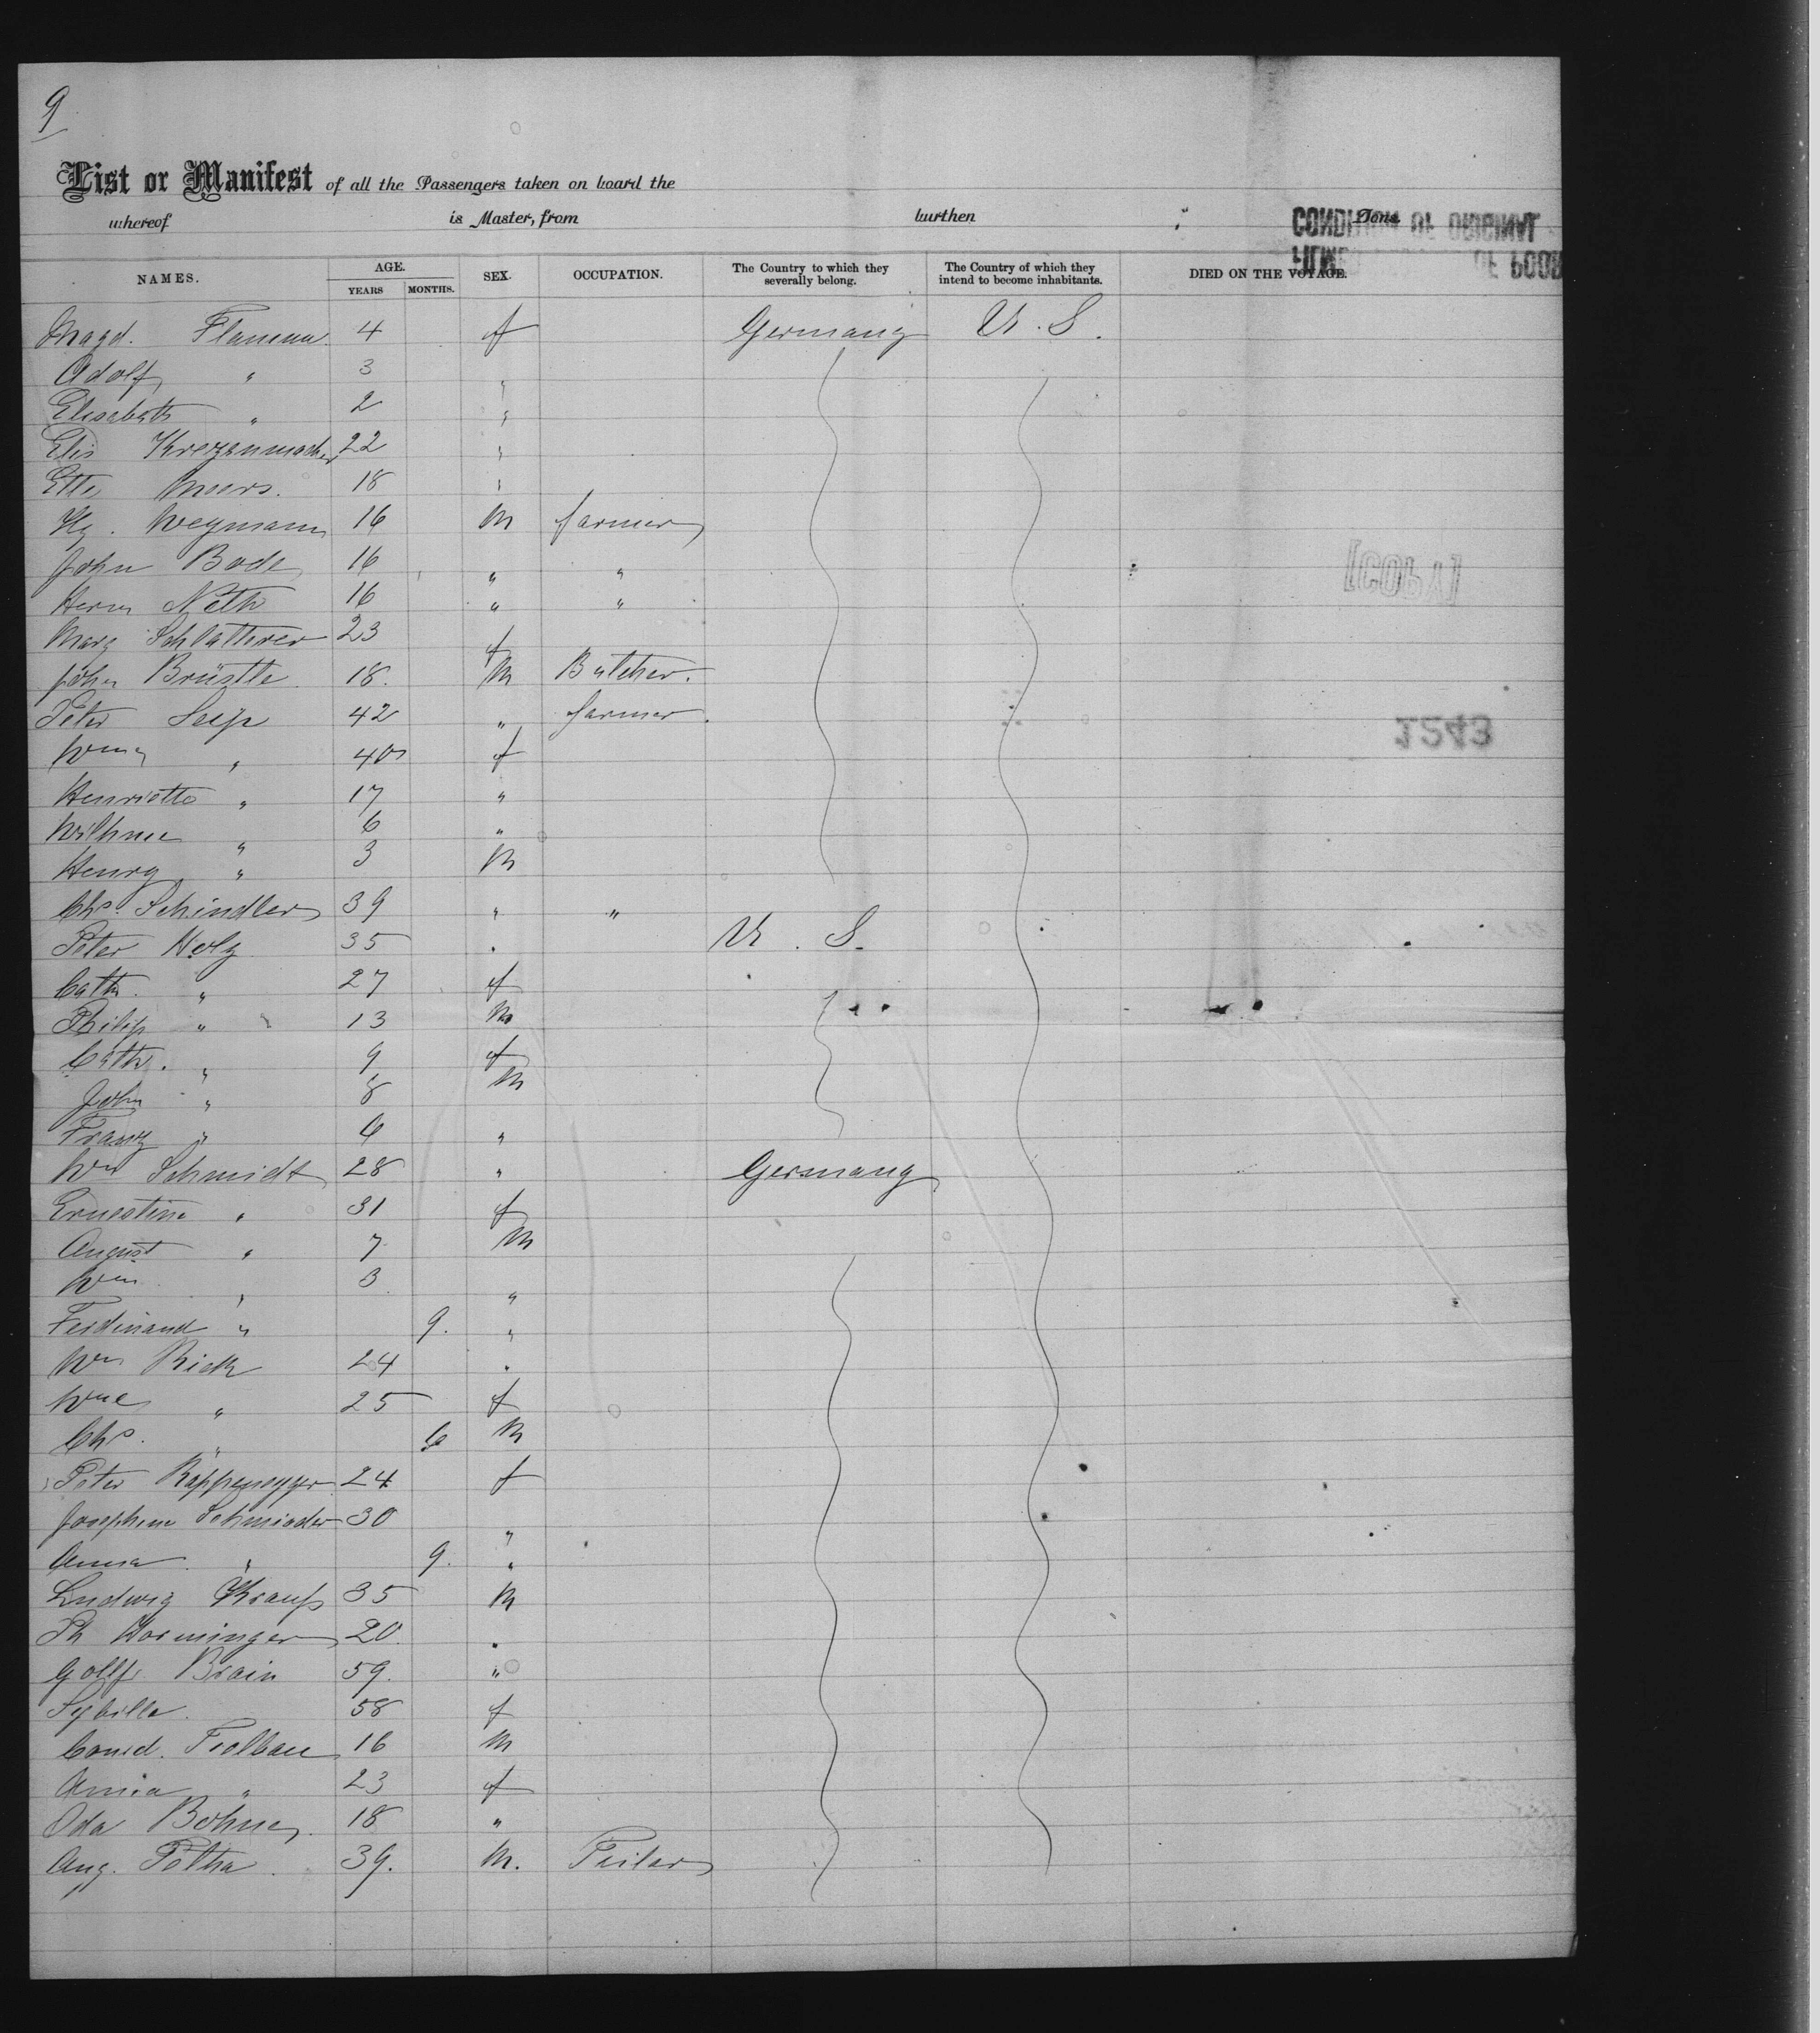 9
List or Manifest of all the Passengers taken on board the
whereof is Master, from burthen Tons
CONDITION OF ORIGINAL
NAMES. AGE. YEARS MONTHS. SEX. OCCUPATION. The Country to which they severally belong. The Country of which they intend to become inhabitants. DIED ON THE VOYAGE.
Magd. Flamm 4 f Germany U. S.
Adolf " 3 "
Elisabeth " 2 "
Elis 22 "
Moors. 18 "
Hy. Weymann 16 M farmer
John Bode 16 " "
Herm Neth 16 " "
Marg Schlatterer 23 f
John Brüstle 18. M Butcher.
Peter Seip 42 " farmer.
" 40 f
Henriette " 17 "
" 6 "
Henry " 3 M
Chs. Schindler 39 " "
Peter Holz 35 " U. S.
Cath. " 27 f
Philip " 13 M
Cath. " 9 f
John " 8 M
Franz " 6 "
Wm Schmidt 28 " Germany
Ernestine " 31 f
August " 7 M
Wm " 3 "
Ferdinand " 9. "
Wm Rick 24 "
Wme " 25 f
Chs. " 6 M
Peter 24 f
Josephine Schmieder 30 "
Anna " 9. "
Ludwig Krauß 35 M
Ph 20. "
Brain 59. "
Sybilla. 58 f
16 M
Anna " 23 f
Ida Bohne 18 "
Aug. 39. M.
[COPY]
1243